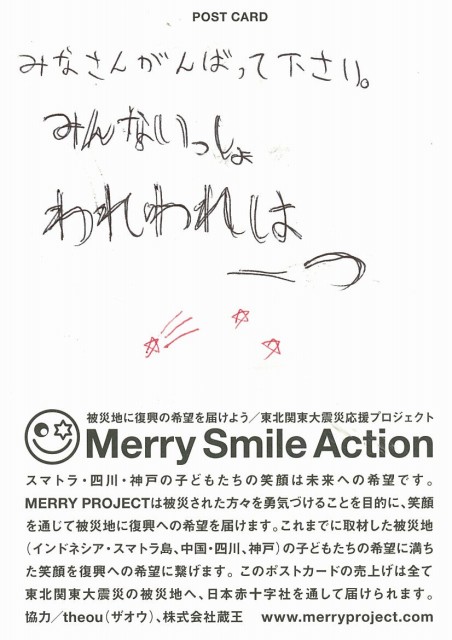 POST CARD
みなさんがんばって下さい。
みんないっしょ
われわれは
一つ
被災地に復興の希望を届けよう／東北関東大震災応援プロジェクト
Merry Smile Action
スマトラ・四川・神戸の子どもたちの笑顔は未来への希望です。
MERRY PROJECTは被災された方々を勇気づけることを目的に、笑顔
を通じて被災地に復興への希望を届けます。これまでに取材した被災地
（インドネシア・スマトラ島、中国・四川、神戸）の子どもたちの希望に満ち
た笑顔を復興への希望に繋げます。このポストカードの売上げは全て
東北関東大震災の被災地へ、日本赤十字社を通して届けられます。
協力／theou（ザオウ）、株式会社蔵王　www.merryproject.com